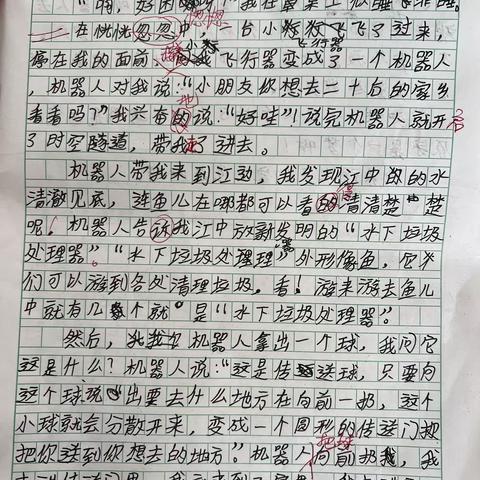 "啊,好困
在恍恍忽忽中,一台小 飞了过来,
停在我的面前, 飞行器变成了一个机器人
,机器人对我说:"小朋友你想去二十后的家乡
看看吗?"我兴奋的说:"好哇"!说完机器人就开
了时空隧道,带我了进去。
机器人带我来到江边,我发现江中的水
清澈见底,连鱼儿在哪都可以看的清清楚楚
呢!机器人告诉我江中放新发明的"水下垃圾
处理器。""水下垃圾处理器"外形像鱼,它
们可以游到各处清理垃圾,看!游来游去鱼儿
中就有几个就是"水下垃圾处理器"。
然后,机器人拿出一个球,我问它
这是什么?机器人说:"这是传送球,只要向
这个球说出要去什么地方在向前一扔,这个
小球就会分散开来,变成一个圆形的传送门
把你送到你想去的地方。"机器人向前扔,我